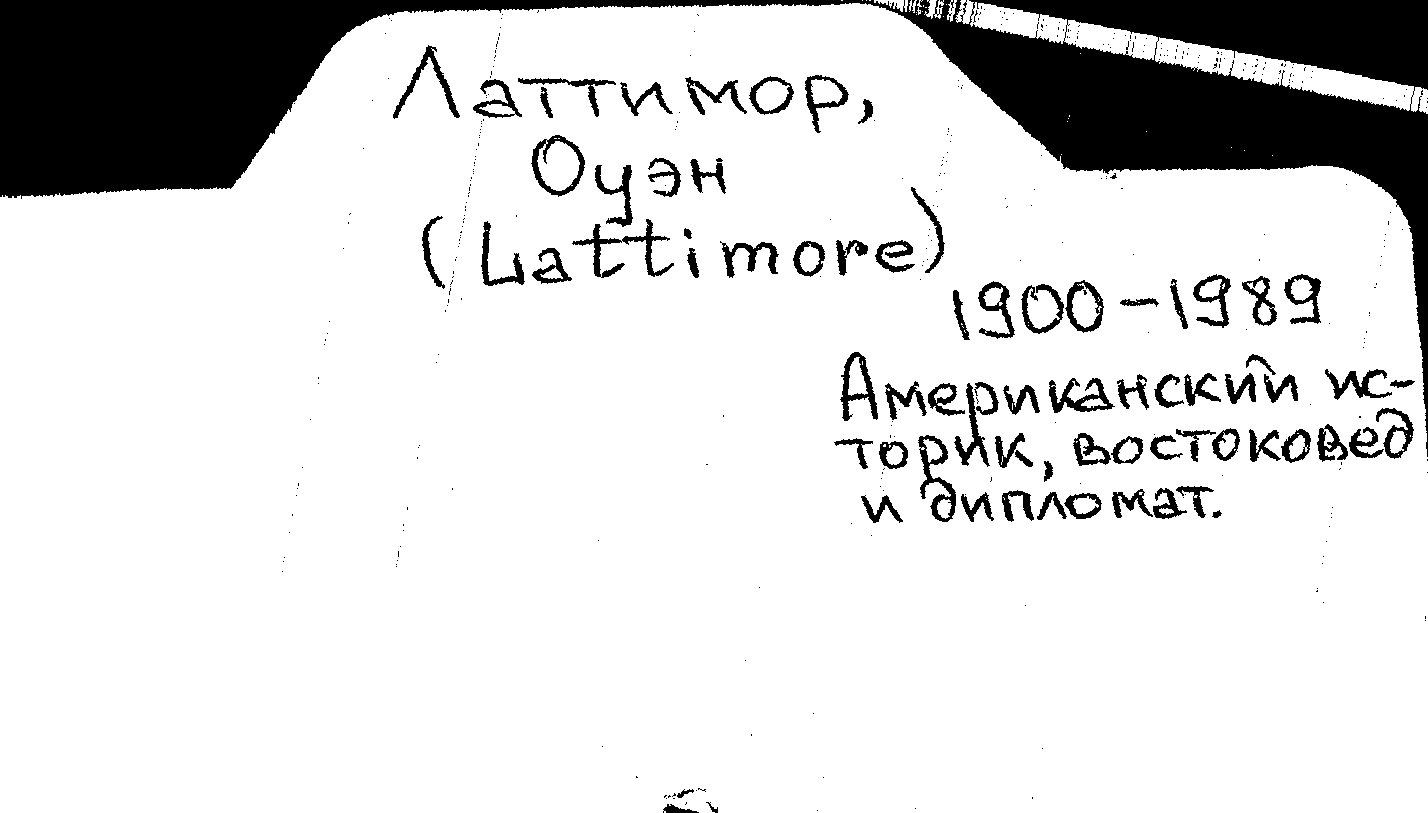 Латтимор,
Оуэн
(Lattimore)
1900-1989
Американский ис-
торик, востоковед
и дипломат.